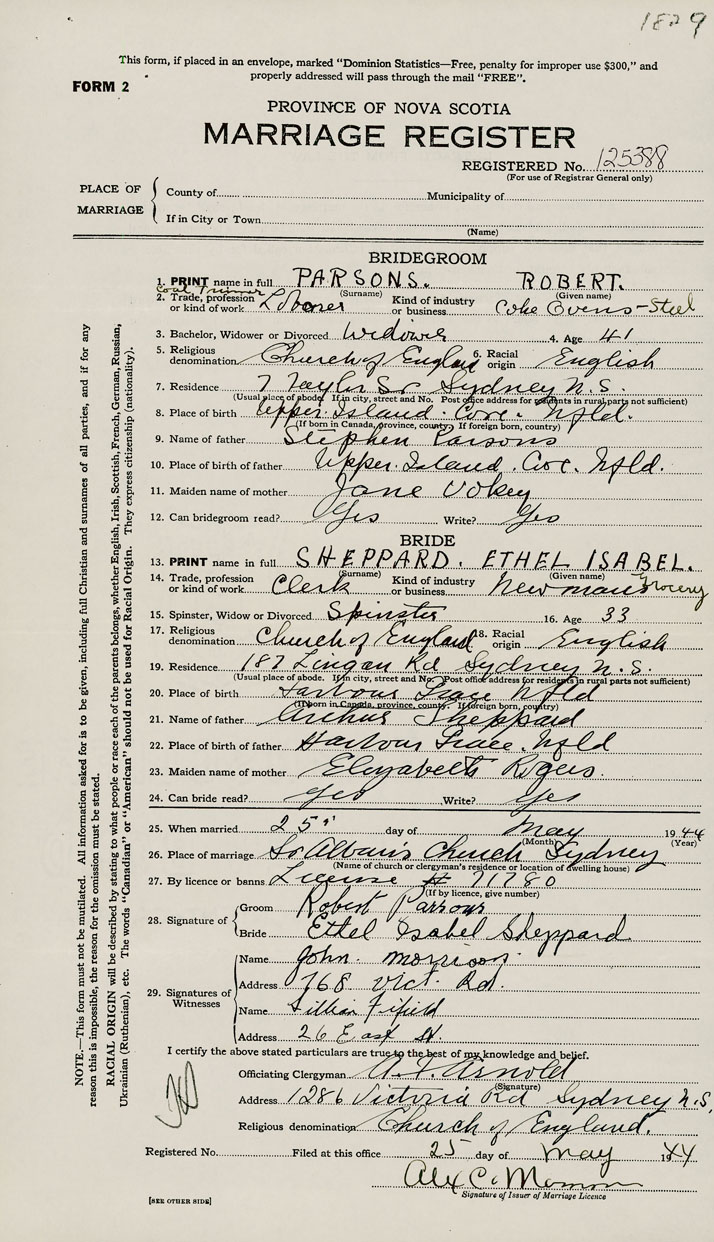 1829
This form, if placed in an envelope, marked "Dominion Statistics—Free, penalty for improper use $300," and
properly addressed will pass through the mail "FREE".
FORM 2
PROVINCE OF NOVA SCOTIA
MARRIAGE REGISTER
REGISTERED No. 125388
(For use of Registrar General only)
PLACE OF MARRIAGE
County of Municipality of
If in City or Town
(Name)
BRIDEGROOM
1. PRINT name in full PARSONS. ROBERT.
(Surname) (Given name)
Coal Trimmer
2. Trade, profession or kind of work Laborer Kind of industry or business Coke Ovens - Steel
3. Bachelor, Widower or Divorced Widower 4. Age 41
5. Religious denomination Church of England 6. Racial origin English
7. Residence 7 Taylor St Sydney N.S.
(Usual place of abode. If in city, street and No. Post office address for residents in rural parts not sufficient)
8. Place of birth Upper Island Cove. Nfld.
(If born in Canada, province, county. If foreign born, country)
9. Name of father Stephen Parsons
10. Place of birth of father Upper Island Cove. Nfld.
11. Maiden name of mother Jane Vokey
12. Can bridegroom read? Yes Write? Yes
BRIDE
13. PRINT name in full SHEPPARD. ETHEL ISABEL.
(Surname) (Given name)
14. Trade, profession or kind of work Clerk Kind of industry or business Newmans Grocery
15. Spinster, Widow or Divorced Spinster 16. Age 33
17. Religious denomination Church of England 18. Racial origin English
19. Residence 187 Lingan Rd Sydney N.S.
(Usual place of abode. If in city, street and No. Post office address for residents in rural parts not sufficient)
20. Place of birth Harbour Grace Nfld
(If born in Canada, province, county. If foreign born, country)
21. Name of father Arthur Sheppard
22. Place of birth of father Harbour Grace. Nfld
23. Maiden name of mother Elizabeth Rogers.
24. Can bride read? Yes Write? Yes
25. When married 25" day of May 1944
(Month) (Year)
26. Place of marriage St Alban's Church Sydney
(Name of church or clergyman's residence or location of dwelling house)
27. By licence or banns License # 71780
(If by licence, give number)
28. Signature of
Groom Robert Parsons
Bride Ethel Isabel Sheppard
29. Signatures of Witnesses
Name John Morrison
Address 768 Vict. Rd.
Name Lillian Fifield
Address 26 East St.
I certify the above stated particulars are true to the best of my knowledge and belief.
Officiating Clergyman Arnold
(Signature)
Address 1286 Victoria Rd Sydney N.S.
Religious denomination Church of England.
Registered No. Filed at this office 25 day of May 1944
Alex C.
Signature of Issuer of Marriage Licence
[SEE OTHER SIDE]
NOTE.—This form must not be mutilated. All information asked for is to be given, including full Christian and surnames of all parties, and if for any
reason this is impossible, the reason for the omission must be stated.
RACIAL ORIGIN will be described by stating to what people or race each of the parents belongs, whether English, Irish, Scottish, French, German, Russian,
Ukrainian (Ruthenian), etc. The words "Canadian" or "American" should not be used for Racial Origin. They express citizenship (nationality).